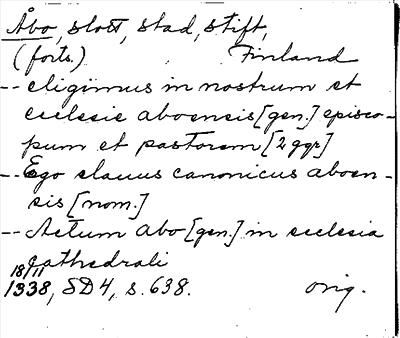 Åbo, slott, stad, stift,
(forts.) Finland
-- eligimus in nostrum et
ecclesie aboensis [gen.] episco-
pum et pastorem [2 ggr]
-- Ego elauus canonicus aboen-
sis [nom.]
-- Actum abo [gen.] in ecclesia
cathedrali
18/11
1338, SD4, s. 638. orig.